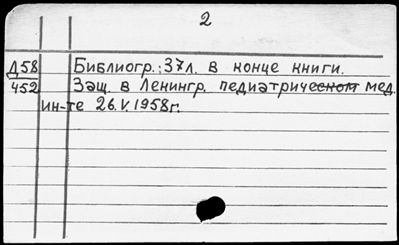 2
Д58 Библиогр.: 37л. в конце книги.
452 Защ. в Ленингр. педиатрическом мед.
ин-те 26.V.1958г.